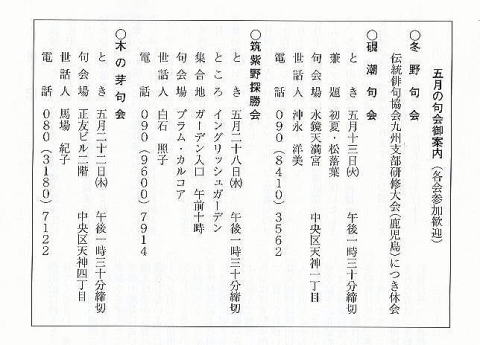 五月の句会御案内（各会参加歓迎）
〇冬野句会
伝統俳句協会九州支部研修大会（鹿児島）につき休会
〇硯潮句会
とき 五月十三日㈫ 午後一時三十分締切
兼題 初夏・松落葉
句会場 水鏡天満宮 中央区天神一丁目
世話人 沖永 洋美
電話 090（8410）3562
〇筑紫野探勝会
とき 五月二十八日㈬ 午後一時三十分締切
ところ イングリッシュガーデン
集合地 ガーデン入口 午前十時
句会場 プラム・カルコア
世話人 白石 照子
電話 090（9600）7914
〇木の芽句会
とき 五月二十二日㈭ 午後一時三十分締切
句会場 正友ビル二階 中央区天神四丁目
世話人 馬場 紀子
電話 080（3180）7122